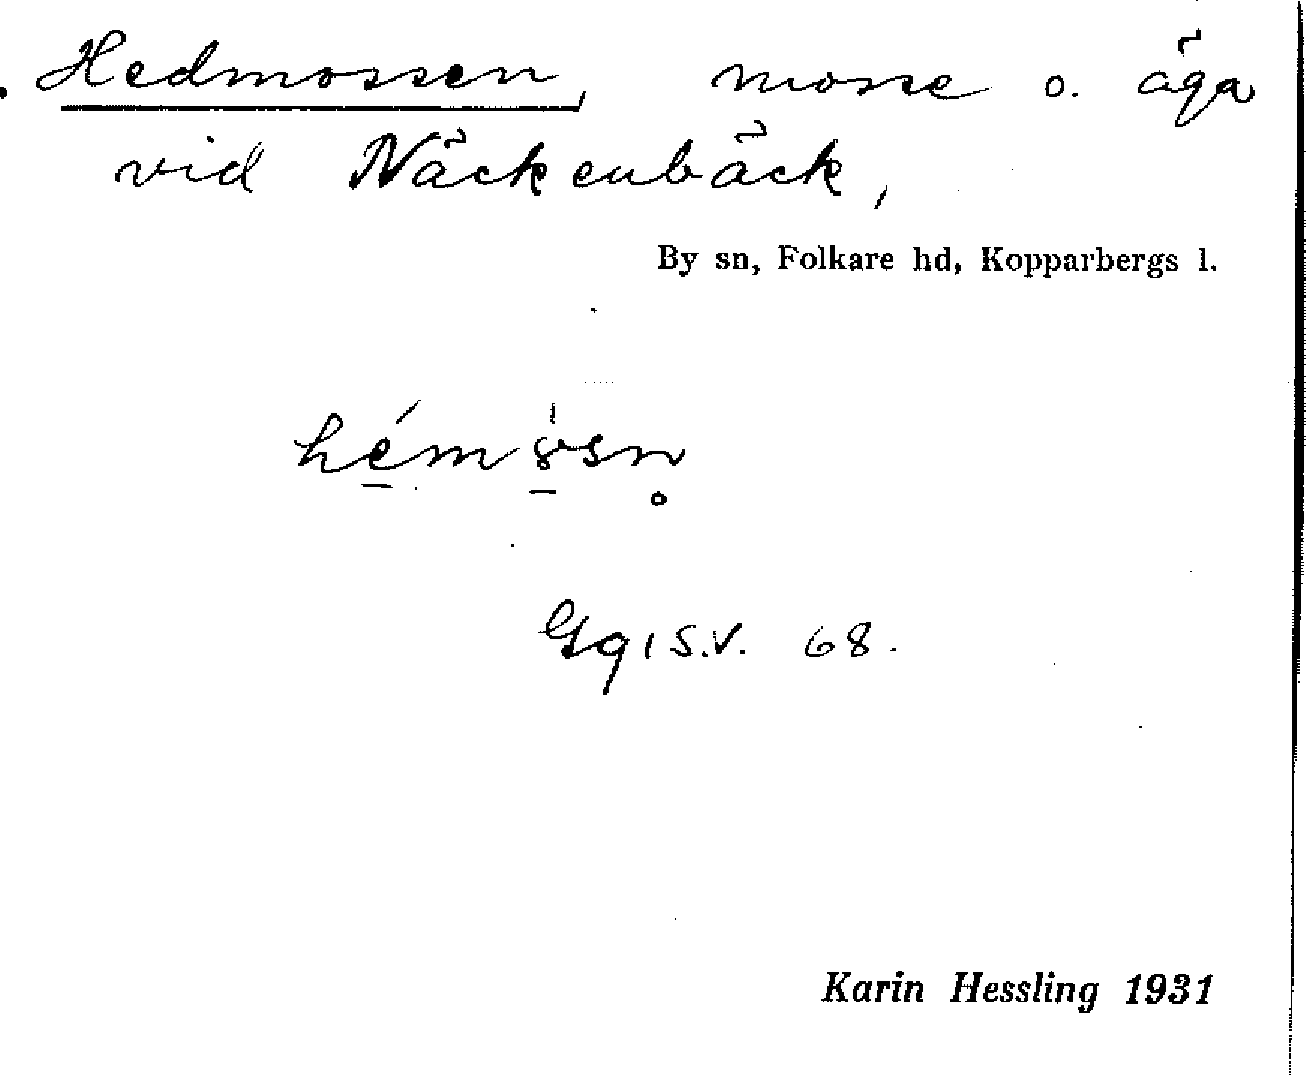 Hedmossen, mosse o. äga
vid Näckenbäck,
By sn, Folkare hd, Kopparbergs l.
S.V. 68.
Karin Hessling 1931